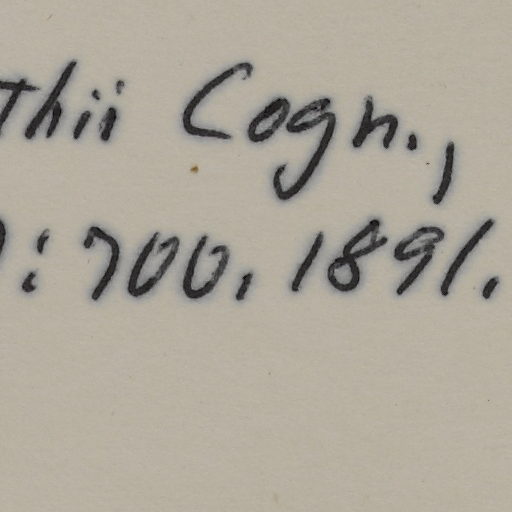 thii Cogn.,
): 700, 1891.